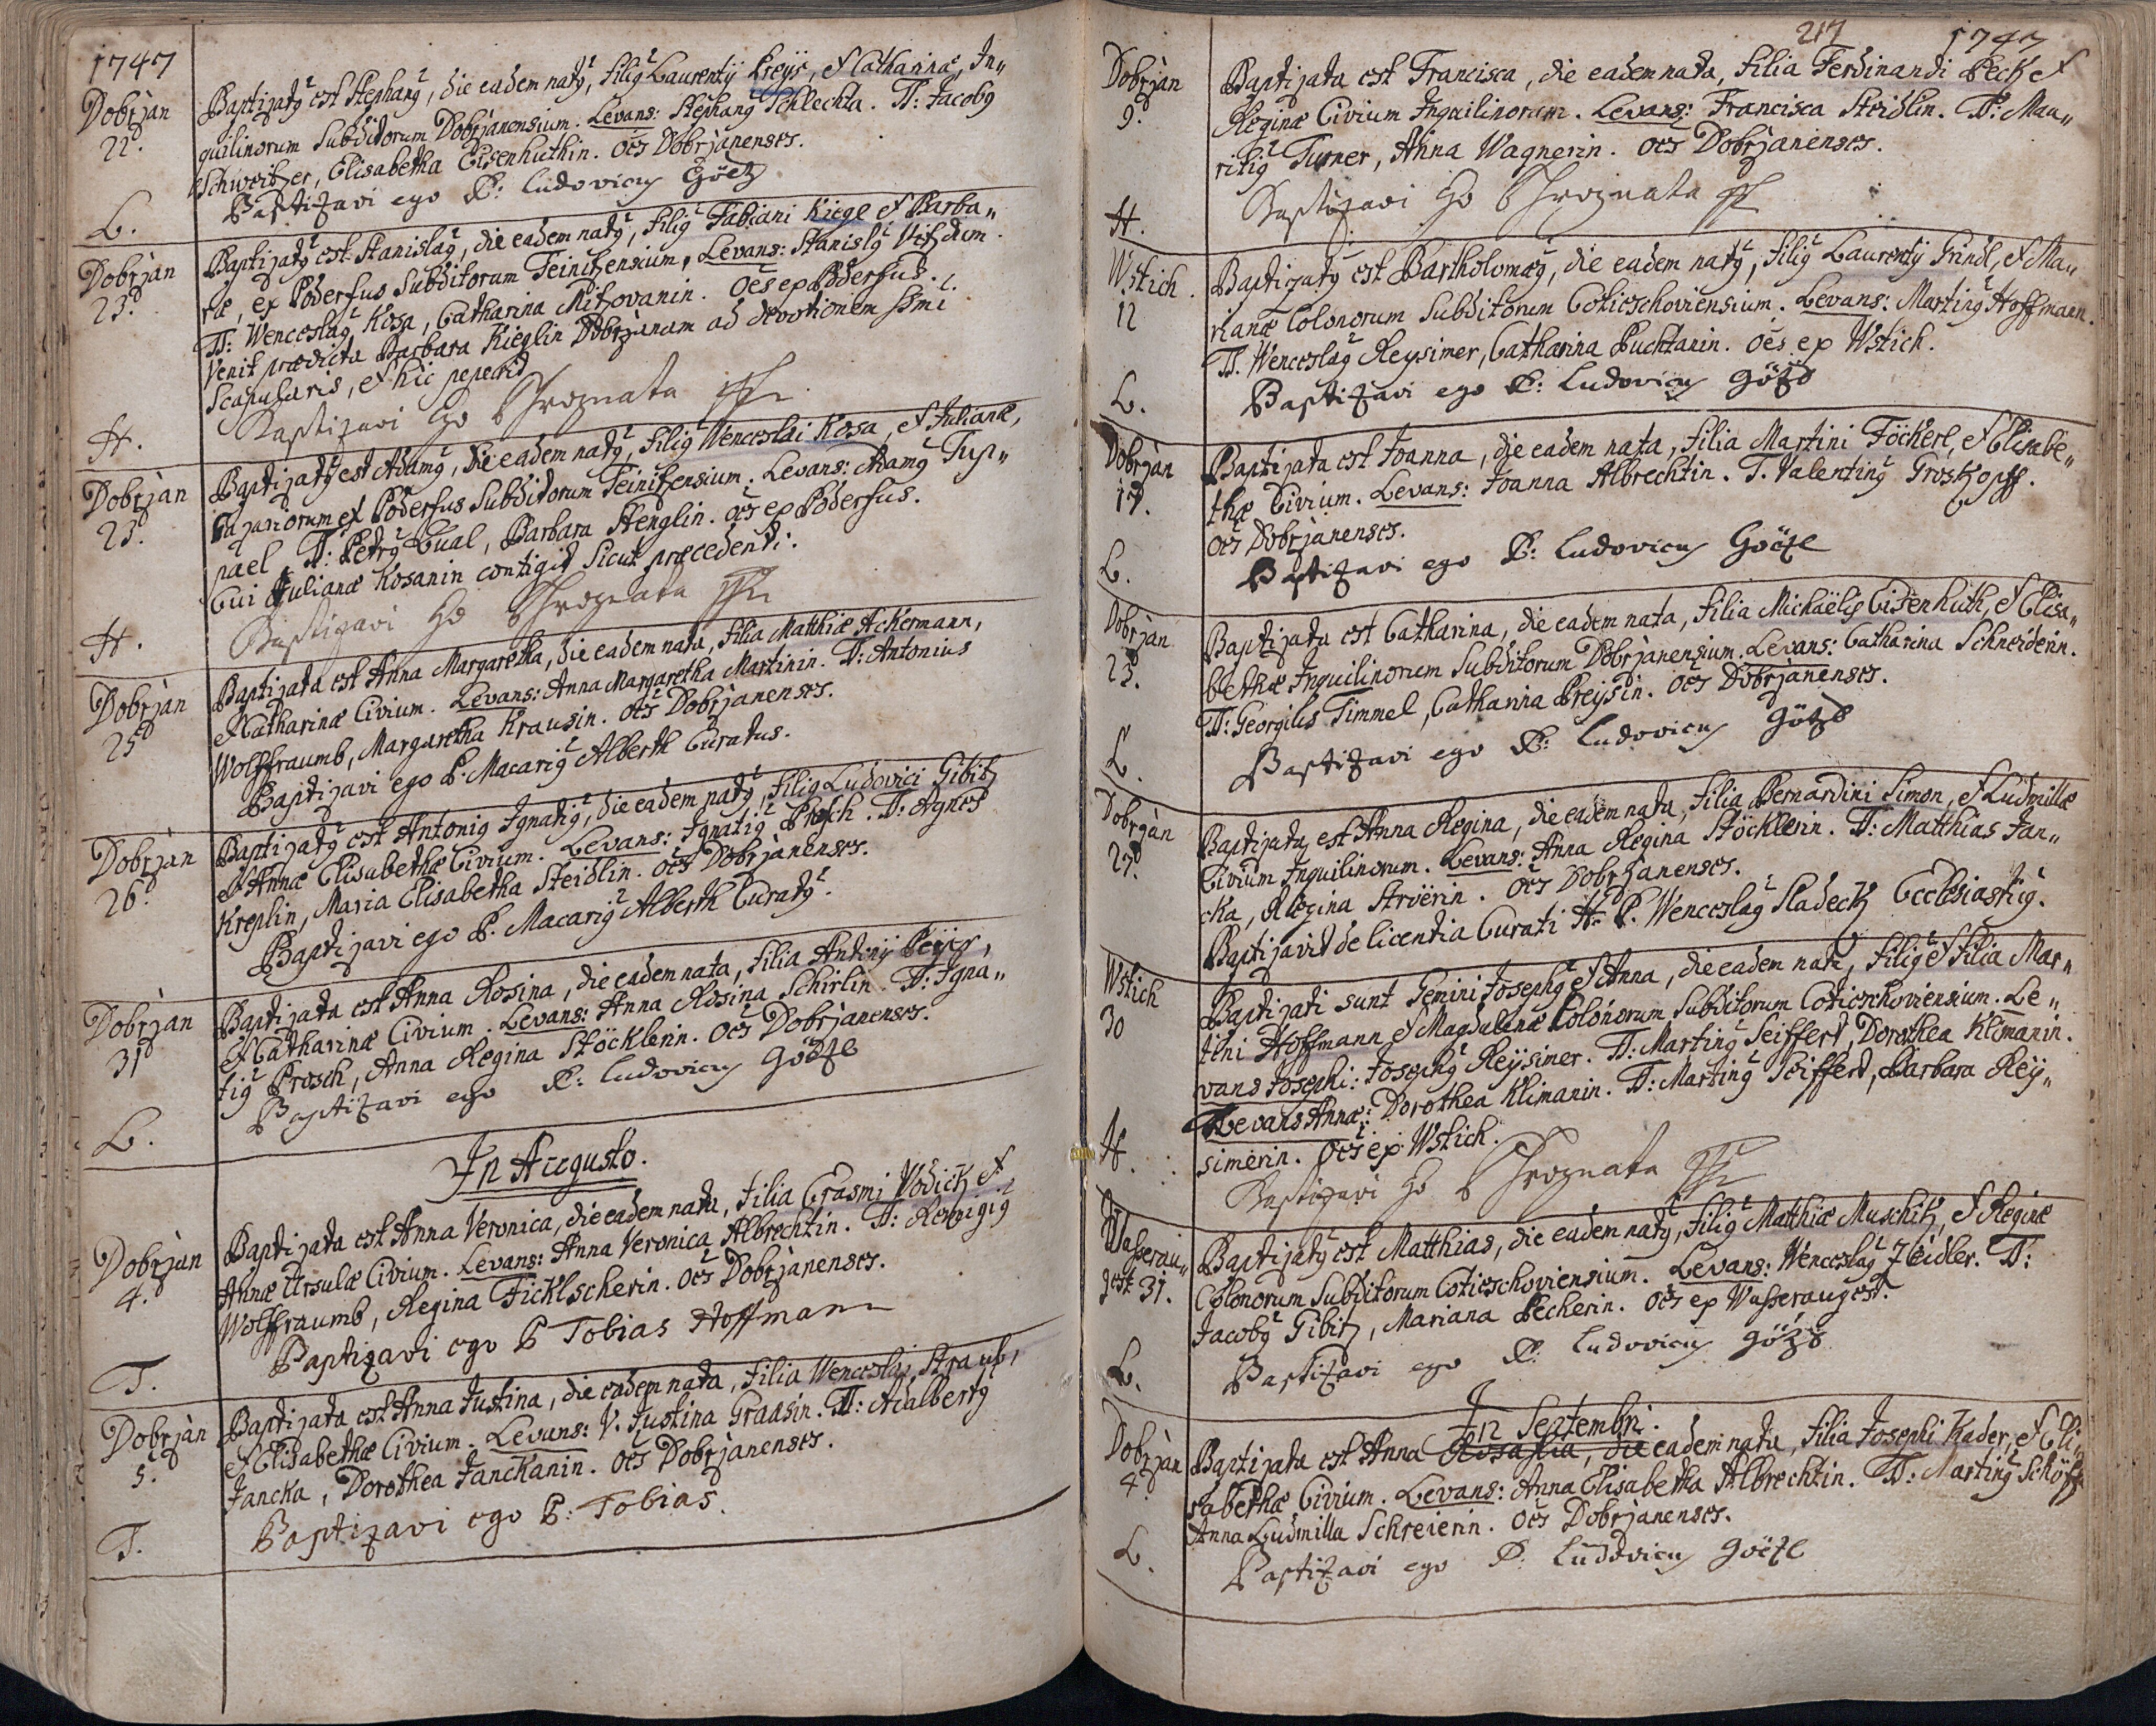 1747
Dobrzan
22.
Baptizatꝰ est Stephanꝰ, die eadem natꝰ, filiꝰ Laurentij Preys, et Catharinæ, In„
quilinorum Subditorum Dobrzanensium. Levans: Stephanꝰ Schlechta. TT: Jacobꝰ
Schweitzer, Elisabetha Eisenhuthin. oes Dobrzanenses.
Baptizavi ego P: Ludovicus Götz
L.
Dobrzan
23.
Baptizatꝰ est Stanislaꝰ, die eadem natꝰ, filiꝰ Fabiani Kiegl et Barba„
ræ, ex Poderfus Subditorum Teinitzensium, Levans: Stanislꝰ Vitzdum.
TT: Wenceslaꝰ Kosa, Catharina Mitzovanin. Oes ex Poderfus.
Venit prædicta Barbara Kieglin Dobrzanam ad devotionem ssmi
Scapularis, et hic peperit
Baptizavi Ego Hroznata
H.
Dobrzan
23.
Baptizatꝰ est Adamꝰ, die eadem natꝰ, filiꝰ Wenceslai Kosa, et Julianæ,
Casariorum ex Poderfus Subditorum Teinitzensium. Levans: Adamꝰ Tup„
pael. TT: Petrꝰ Cual, Barbara Stenglin. oes ex Poderfus.
Cui Julianæ Kosanin contigit sicut præcedenti.
Baptizavi Ego Hroznata
H.
Dobrzan
25
Baptizata est Anna Margaretha, die eadem nata, filia Matthiæ Ackermann,
et Catharinæ Civium. Levans: Anna Margaretha Martinin. TT: Antonius
Wolffraumb, Margaretha Krausin. oes Dobrzanenses.
Baptizavi ego P. Macariꝰ Alberth Curatus.
Dobrzan
26.
Baptizatꝰ est Antoniꝰ Ignatiꝰ, die eadem natꝰ, filiꝰ Ludovici Gibitz
et Annæ Elisabethæ Civium. Levans: Ignatiꝰ Prosch. TT: Agnes
Kreplin, Maria Elisabetha Steidlin. oes Dobrzanenses.
Baptizavi ego P. Macariꝰ Alberth Curatꝰ.
Dobrzan
31
Baptizata est Anna Rosina, die eadem nata, filia Antonij Peijer,
et Catharinæ Civium. Levans: Anna Rosina Schirlin. TT: Igna„
tiꝰ Prosch, Anna Regina Stöcklerin. oes Dobrzanenses.
Baptizavi ego P: Ludovicus Götzl
L.
In Augusto.
Dobrzan
4.
Baptizata est Anna Veronica, die eadem nata, filia Erasmi Vodick et
Annæ Ursulæ Civium. Levans: Anna Veronica Albrechtin. TT: Remigiꝰ
Wolffraumb, Regina Ficklscherin. oes Dobrzanenses.
Baptizavi ego P Tobias Hoffmann
T.
Dobrzan
5.
Baptizata est Anna Justina, die eadem nata, filia Wenceslai Straub,
et Elisabethæ Civium. Levans: V. Justina Graasin. TT: Adalbertꝰ
Jancka, Dorothea Janckanin. oes Dobrzanenses.
Baptizavi ego P: Tobias.
T.
217 1747
Dobrzan
9.
Baptizata est Francisca, die eadem nata, filia Ferdinandi Peck et
Reginæ Civium Inquilinorum. Levans: Francisca Steidlin. TT: Mau„
ritiꝰ Turner, Anna Wagnerin. oes Dobrzanenses.
Baptizavi Ego Hroznata
H.
Wstich.
12
Baptizatꝰ est Bartholomæꝰ, die eadem natꝰ, filiꝰ Laurentij Grindl, et Ma„
rianæ Colonorum Subditorum Cotieschoviensium. Levans: Martinꝰ Hoffmann.
TT. Wenceslaꝰ Reysimer, Catharina Puchtanin. oes ex Wstich.
Baptizavi ego P: Ludovicus Götzl
L.
Dobrzan
17.
Baptizata est Joanna, die eadem nata, filia Martini Föckerl, et Elisabe„
thæ Civium. Levans: Joanna Albrechtin. T. Valentinꝰ Groskopff.
oes Dobrzanenses.
Baptizavi ego P: Ludovicus Göötzl
L.
Dobrzan
23.
Baptizata est Catharina, die eadem nata, filia Michaëlis Eisenhuth, et Elisa„
bethæ Inquilinorum Subditorum Dobrzanensium. Levans: Catharina Schneiderin.
TT: Georgius Timmel, Catharina Preysin. oes Dobrzanenses.
Baptizavi ego P: Ludovicus Götzl
L.
Dobrzan
27.
Baptizata est Anna Regina, die eadem nata, filia Bernardini Simon, et Ludmillæ
Civium Inquilinorum. Levans: Anna Regina Stöcklerin. TT: Matthias Jan„
cka, Regina Stroërin. oes Dobrzanenses.
Baptizavit de licentia Curati A. P. Wenceslaꝰ Sladeck Ecclesiastiꝰ.
Wstich
30
Baptizati sunt Gemini Josephꝰ et Anna, die eadem nati, filiꝰ et filia Mar„
tini Hoffmann et Magdalenæ Colonorum Subditorum Cotieschoviensium. Le„
vans Josephi: Josephꝰ Reysimer. TT: Martinꝰ Seiffert, Dorothea Klimanin.
Levans Annæ: Dorothea Klimanin. TT: Martinꝰ Seiffert, Barbara Rey„
simerin. oes ex Wstich.
Baptizavi Ego Hroznata
H.
Wasserau„
gest 31.
Baptizatꝰ est Matthias, die eadem natꝰ, filiꝰ Matthiæ Muschik, et Reginæ
Colonorum Subditorum Cotieschoviensium. Levans: Wenceslaꝰ Zeidler. TT:
Jacobꝰ Gibitz, Mariana Pecherin. oes ex Wasseraugest.
Baptizavi ego P: Ludovicus Götzl
L.
In Septembri.
Dobrzan
4.
Baptizata est Anna Rosalia, die eadem nata, filia Josephi Kader, et Eli„
sabethæ Civium. Levans: Anna Elisabetha Albrechtin. TT: Martinꝰ Schöff
Anna Ludmilla Schreierin. oes Dobrzanenses.
Baptizavi ego P: Ludovicus Göötzl
L.